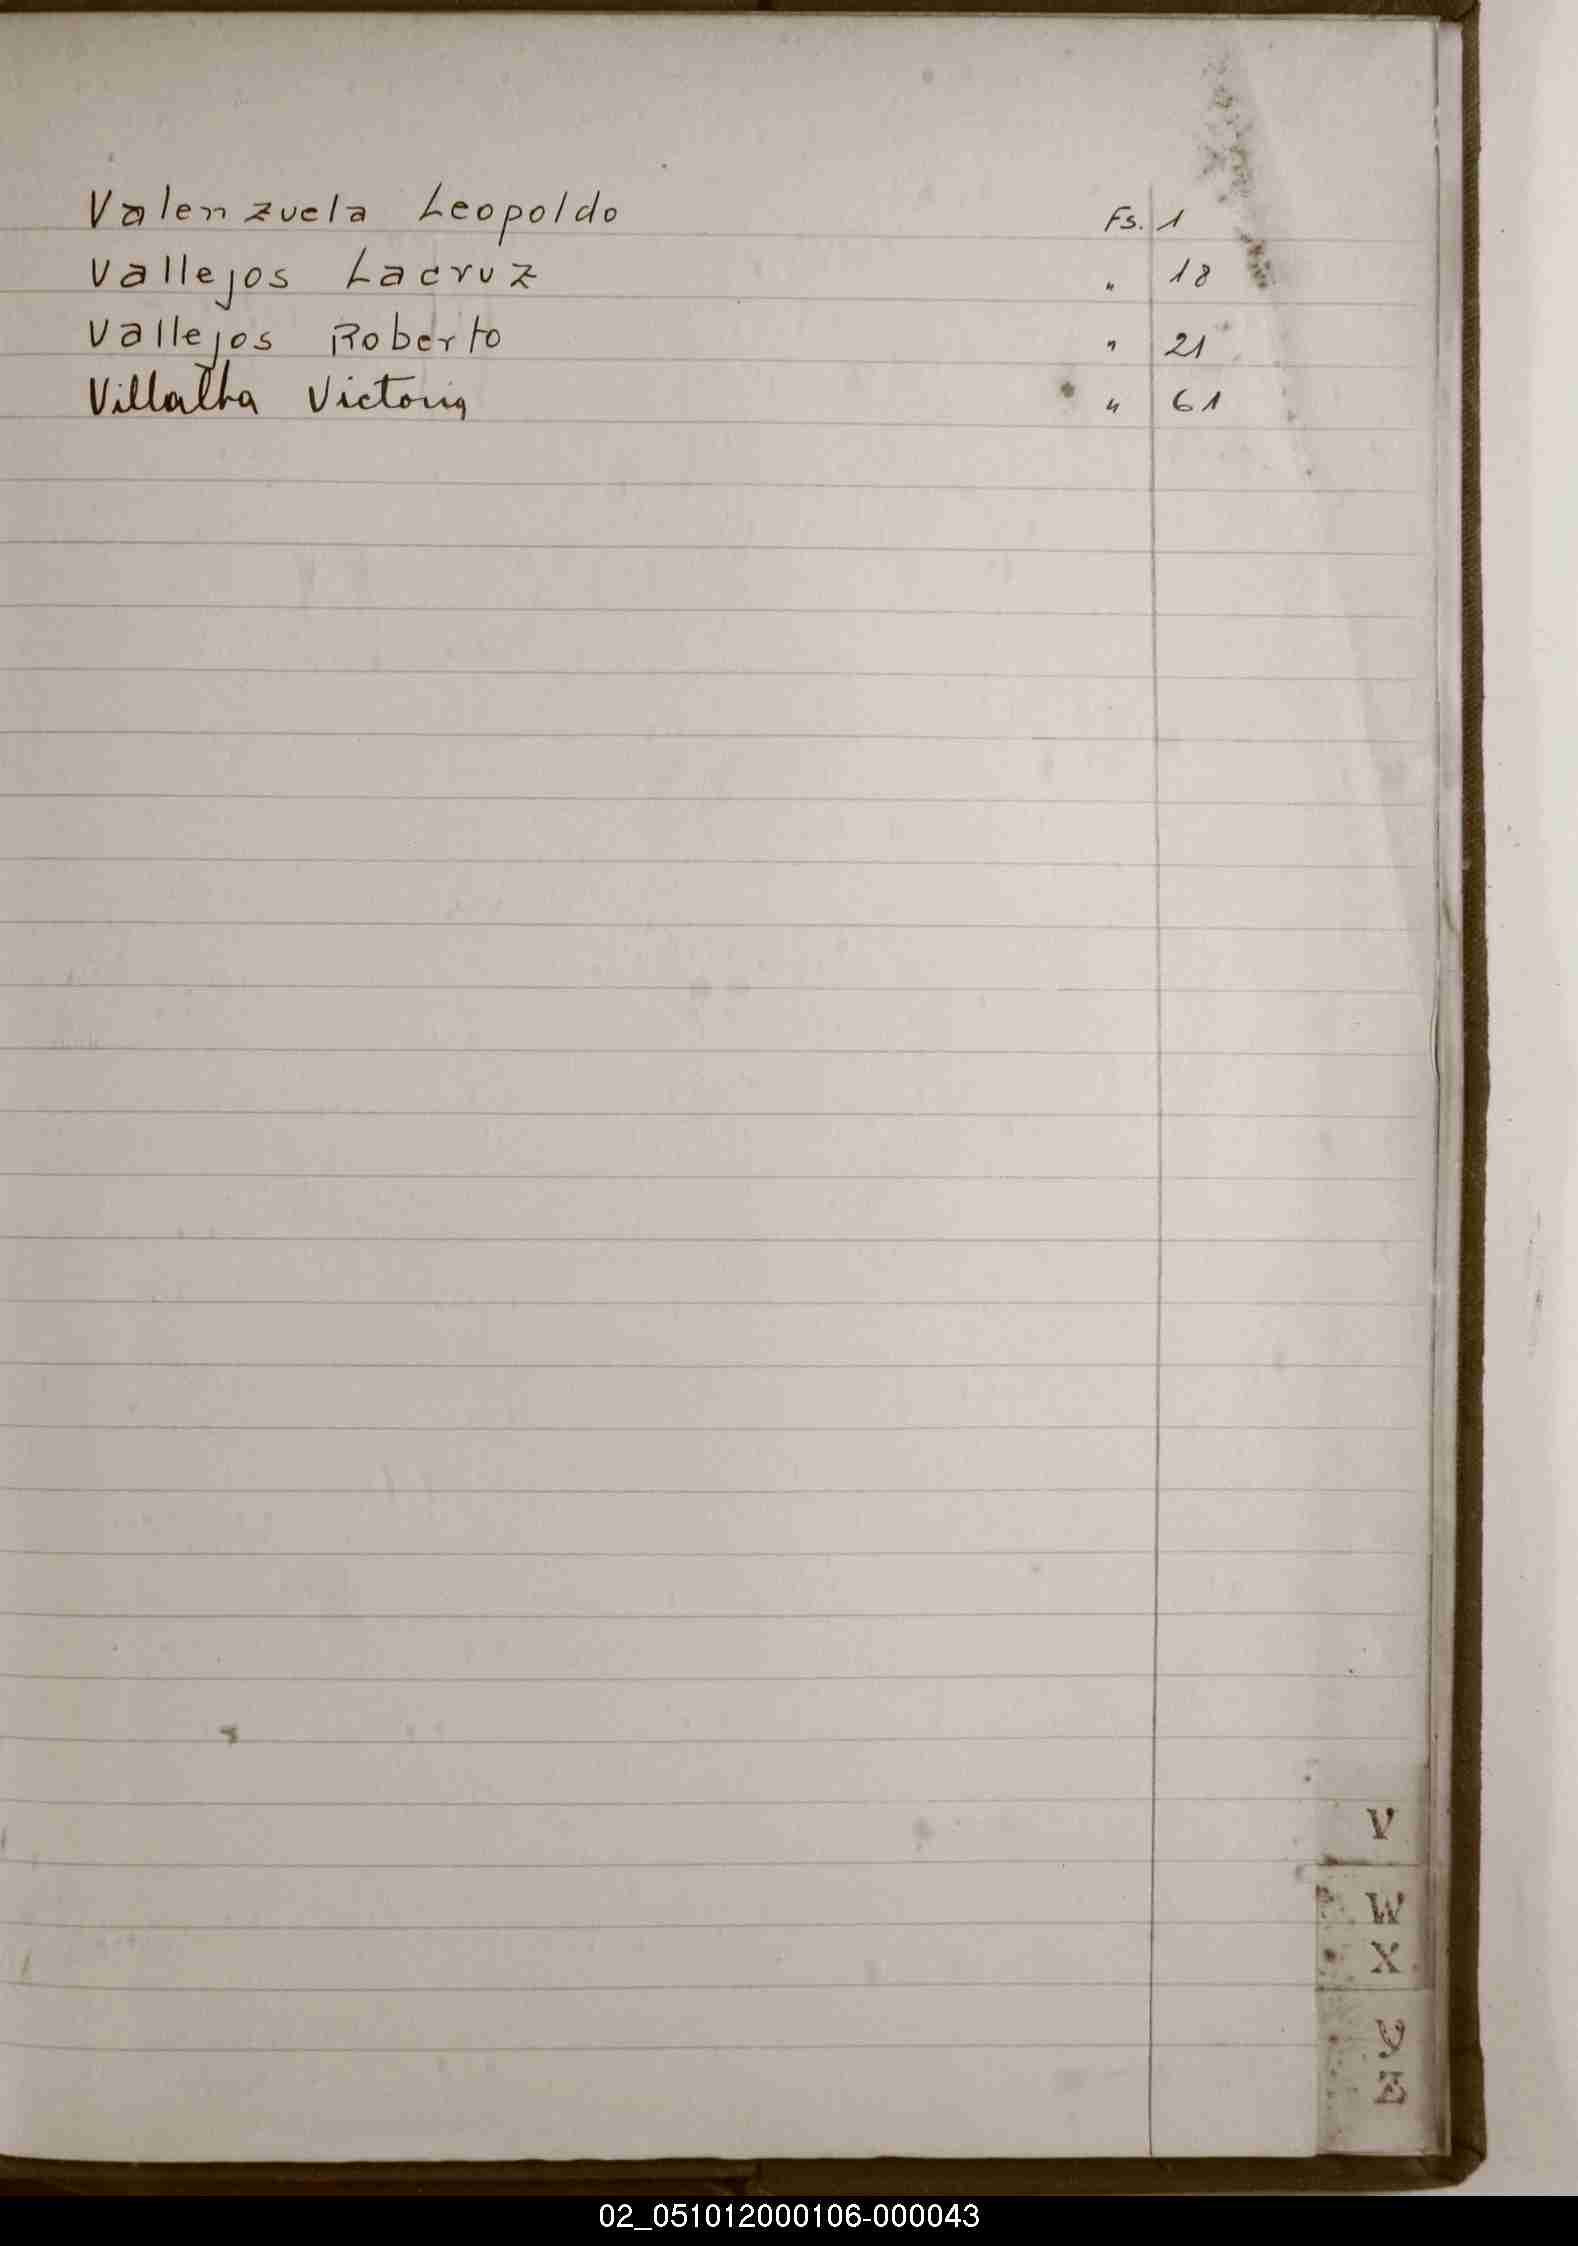 Valenzuela Leopoldo Fs. 1
Vallejos Lacruz " 18
Vallejos Roberto " 21
Villalba Victoria " 61
V
W
X
Y
Z
02_051012000106-000043